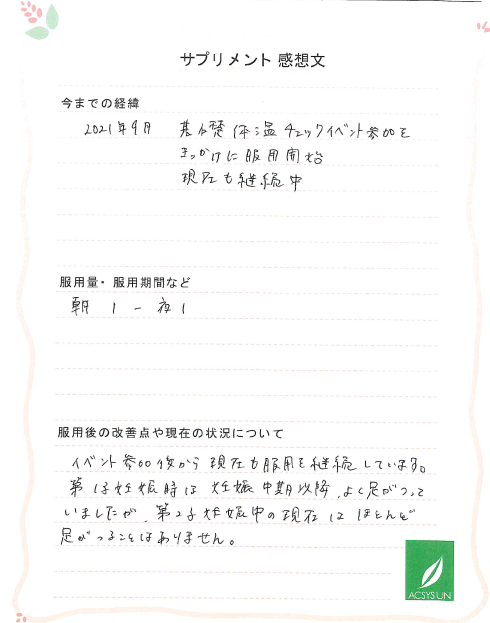 サプリメント 感想文
今までの経緯
2021年9月 基礎体温チェックイベント参加を
きっかけに服用開始
現在も継続中
服用量・服用期間など
朝 1 - 夜 1
服用後の改善点や現在の状況について
イベント参加後から現在も服用を継続しています。
第1子妊娠時は妊娠中期以降、よく足がつって
いましたが、第2子妊娠中の現在はほとんど
足がつることはありません。
ACSYSUN